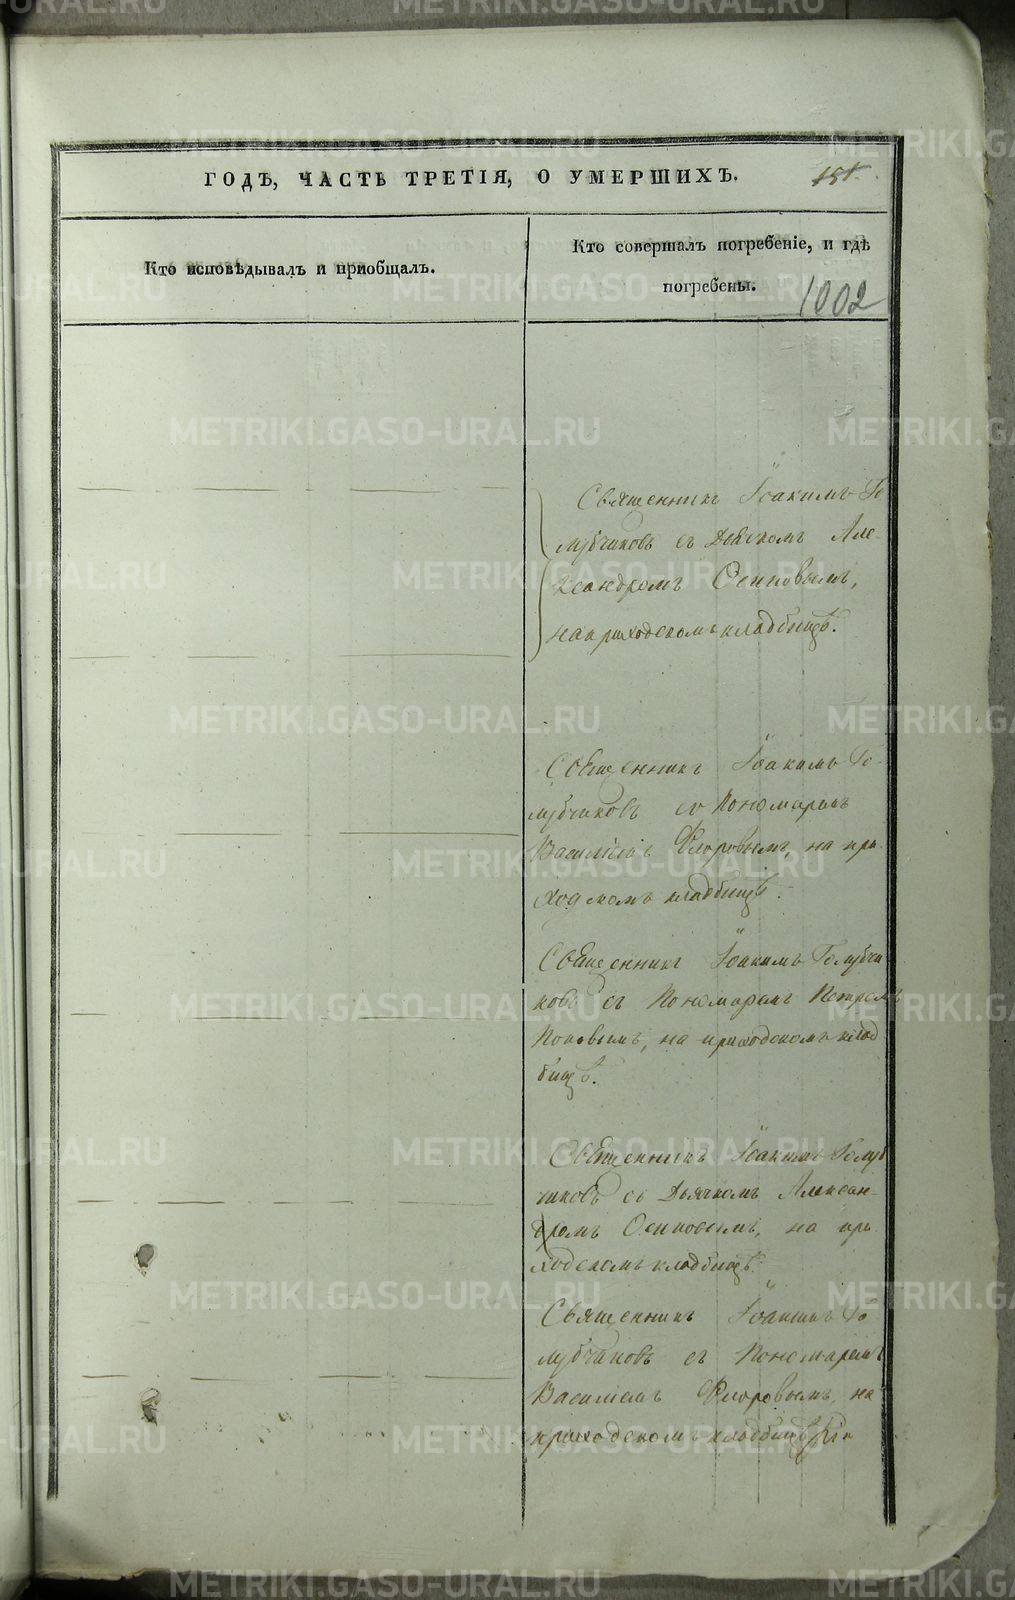 ГОДѢ, ЧАСТЬ ТРЕТІЯ, О УМЕРШИХЪ.
151.
Кто исповѣдывалъ и приобщалъ.
Кто совершалъ погребеніе, и гдѣ
погребены.
1002
Священникъ Іоакимъ Го
лубчиковъ съ Дьячкомъ Але-
ксандромъ Осиповымъ,
на приходскомъ кладбищѣ.
Священникъ Іоакимъ Го-
лубчиковъ съ Пономаремъ
Василіемъ Флоровымъ на при-
ходскомъ кладбищѣ.
Священникъ Іоакимъ Голубчи
ковъ съ Пономаремъ Петромъ
Поповымъ, на приходскомъ клад
бищѣ.
Священникъ Іоакимъ Голуб
чиковъ съ Дьячкомъ Алексан-
дромъ Осиповымъ, на при
ходскомъ кладбищѣ.
Священникъ Іоакимъ Го
лубчиковъ съ Пономаремъ
Василіемъ Флоровымъ, на
приходскомъ кладбищѣ
METRIKI.GASO-URAL.RU